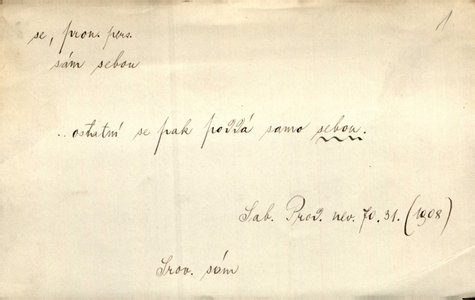 1
se, pron. pers.
sám sebou
.. ostatní se pak poddá samo sebou.
Sab. Prod. nev. 70. 31. (1908)
Srov. sám